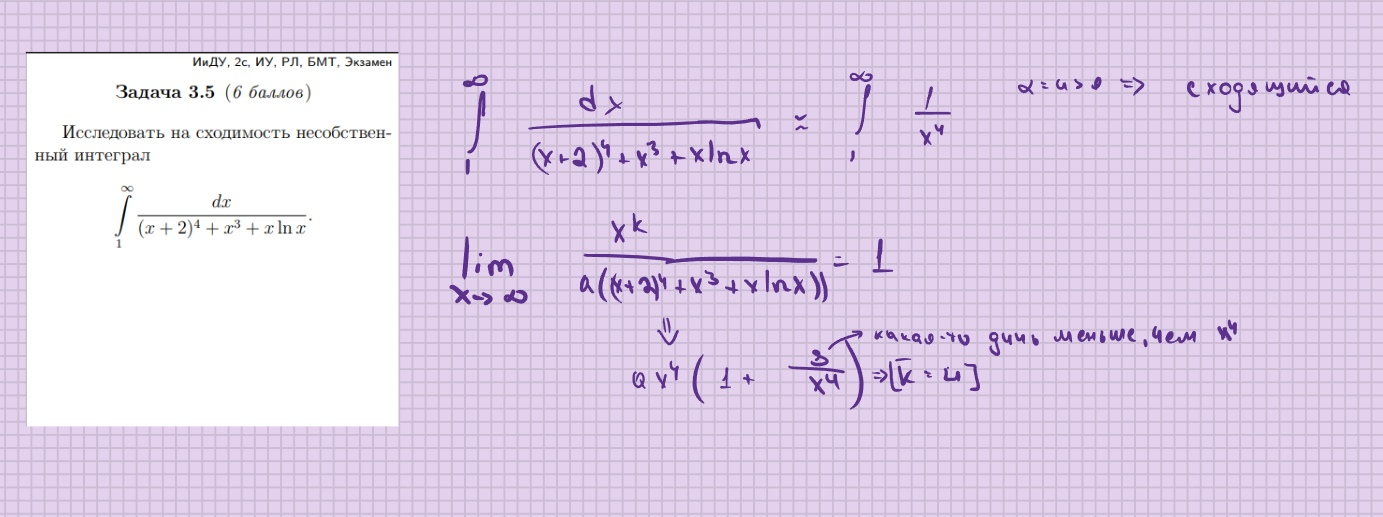 ИиДУ, 2с, ИУ, РЛ, БМТ, Экзамен
Задача 3.5 (6 баллов)
Исследовать на сходимость несобствен-
ный интеграл
∫₁^∞ dx / ((x + 2)⁴ + x³ + x ln x).
∫₁^∞ dx / ((x+2)⁴ + x³ + x ln x) ≈ ∫₁^∞ 1 / x⁴ α = 4 > 0 => сходящийся
lim x→∞ x^k / (a((x+2)⁴ + x³ + x ln x)) = 1
⇓ → какая-то дичь меньше, чем x⁴
a x⁴ (1 + 3 / x⁴) => [k = 4]